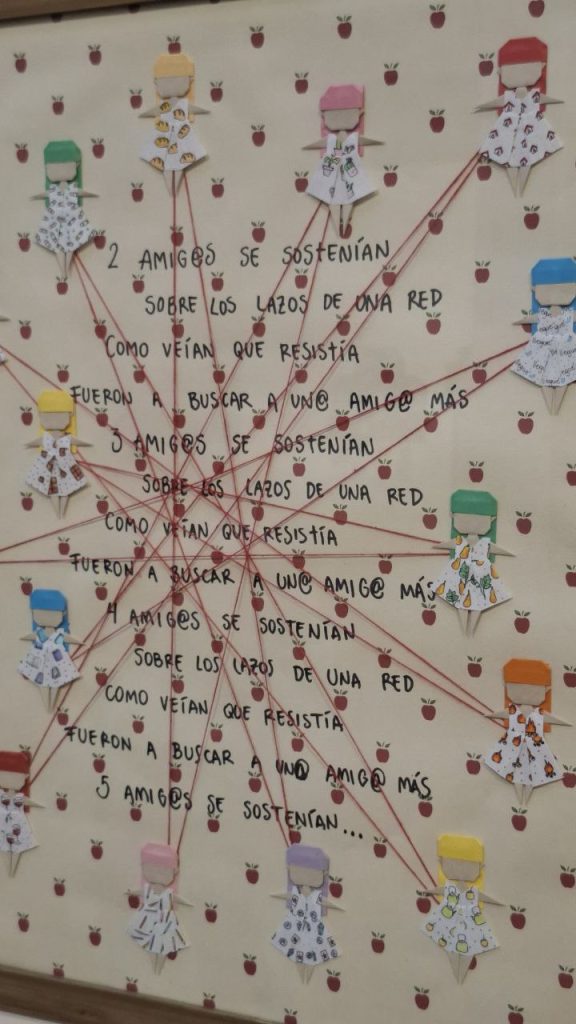 2 AMIG@S SE SOSTENÍAN
SOBRE LOS LAZOS DE UNA RED
COMO VEÍAN QUE RESISTÍA
FUERON A BUSCAR A UN@ AMIG@ MÁS
3 AMIG@S SE SOSTENÍAN
SOBRE LOS LAZOS DE UNA RED
COMO VEÍAN QUE RESISTÍA
FUERON A BUSCAR A UN@ AMIG@ MÁS
4 AMIG@S SE SOSTENÍAN
SOBRE LOS LAZOS DE UNA RED
COMO VEÍAN QUE RESISTÍA
FUERON A BUSCAR A UN@ AMIG@ MÁS
5 AMIG@S SE SOSTENÍAN...